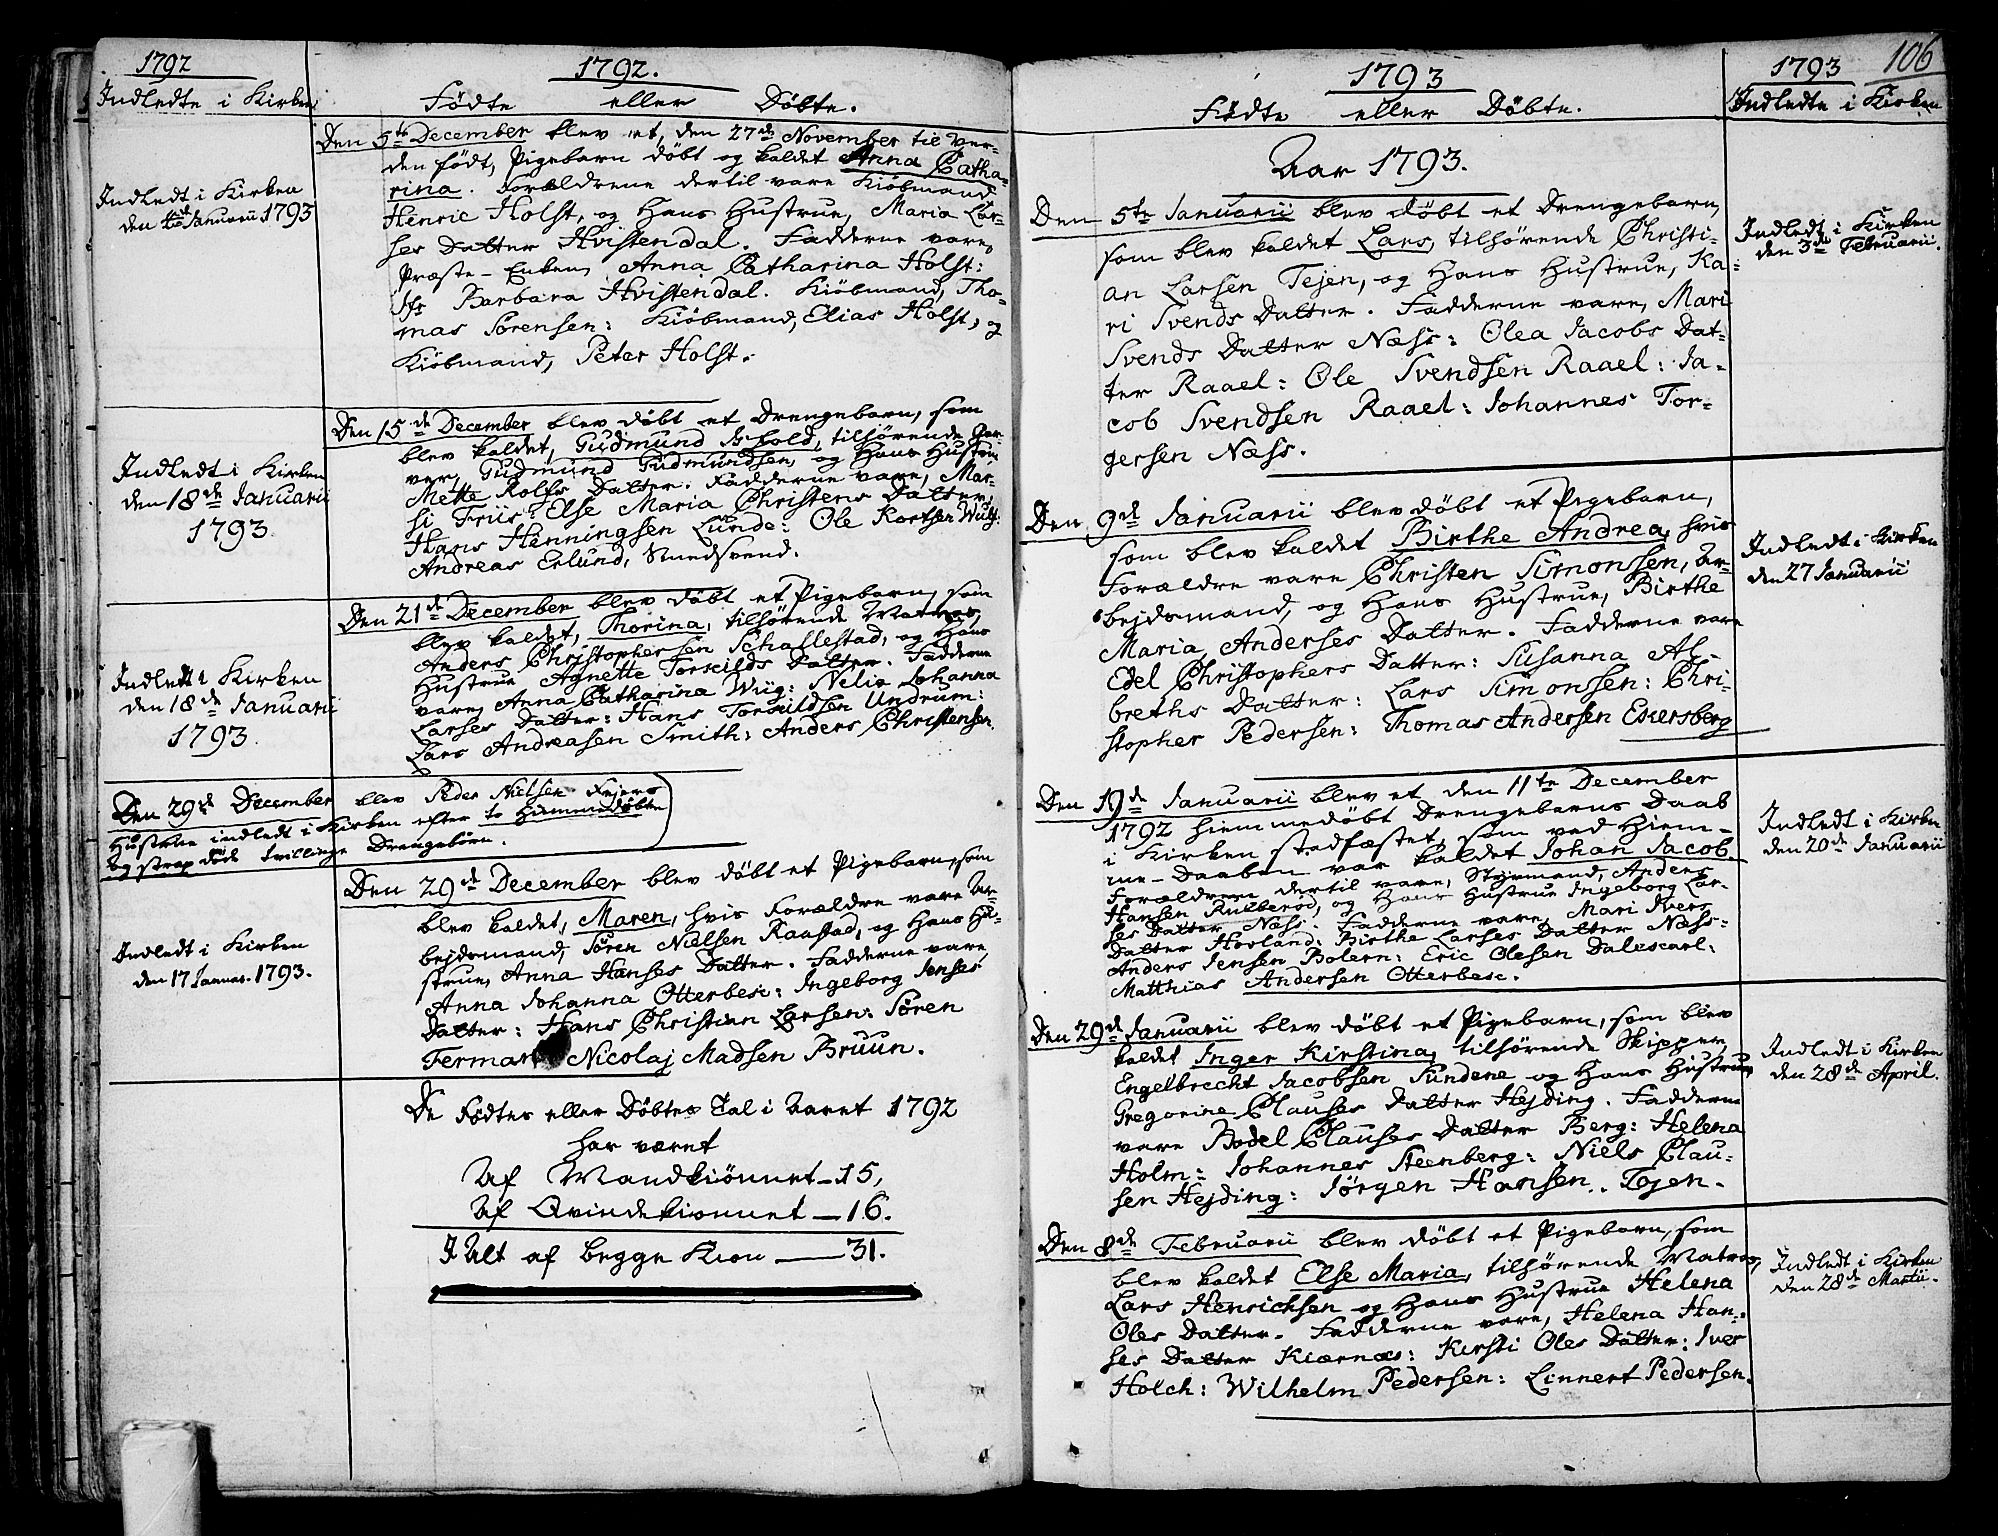 1792
Indledte i Kirken
1792.
Fødte eller Døbte.
Den 5te December blev et, den 27de November til Ver-
den født, Pigebarn døbt og kaldet Anna Catha-
rina. Forældrene dertil vare Kiøbmand,
Henric Holst, og Hans Hustrue, Maria Lar-
ses Datter Hvistendal. Fadderne vare,
Præste-Enken, Anna Catharina Holst:
Jfr Barbara Hvistendal. Kiøbmand, Tho-
mas Sørensen: Kiøbmand, Elias Holst, og
Kiøbmand, Peter Holst.
Indledt i Kirken
den Januarii 1793
Den 15de December blev døbt et Drengebarn, som
blev kaldet, Gudmund, tilhørende Gar-
ver, Gudmund Gudmundsen, og Hans Hustrue
Mette Rolfs Datter. Fadderne vare, Mar-
si Friis: Else Maria Christens Datter,
Hans Henningsen Lunde: Ole Kortsen Wulf:
Andreas Erlund, Smedsvend.
Indledt i Kirken
den 18de Januarii
1793.
Den 21de December blev døbt et Pigebarn, som
blev kaldet, Thorina, tilhørende Matros,
Anders Christophersen Schallestad, og Hans
Hustrue Agnette Torkilds Datter. Fadderne
vare, Anna Catharina Wiig: Nelia Johanna
Larses Datter: Hans Torkildsen Undrum:
Lars Andreasen Smith: Anders Christensen.
Indledt i Kirken
den 18de Januarii
1793.
Den 29de December blev Peder Nielsen Fejers
Hustrue indledt i Kirken efter to Hiemmedøbte
og strax døde Tvillinge Drengebørn.
Den 29de December blev døbt et Pigebarn, som
blev kaldet, Maren, hvis Forældre vare Ar-
bejdsmand, Søren Nielsen Raastad, og Hans Hu-
strue, Anna Hanses Datter. Fadderne vare,
Anna Johanna Otterbech: Ingeborg Jenses
Datter: Hans Christian Larsen: Søren
Ferman Nicolaj Madsen Bruun.
Indledt i Kirken
den 17 Januar. 1793.
De Fødtes eller Døbtes Tal i Aaret 1792
har været
Af Mandkiønnet - 15,
Af Qvindekiønnet - 16.
I Alt af begge Kiøn - 31.
1793
Fødte eller Døbte.
1793
106
Indledte i Kirken
Aar 1793.
Den 5te Januarii blev døbt et Drengebarn,
som blev kaldet Lars, tilhørende Christi-
an Larsen Tejen, og Hans Hustrue, Ka-
ri Svends Datter. Fadderne vare, Mari
Svends Datter Næss: Olea Jacobs Dat-
ter Raael: Ole Svendsen Raael: Ja-
cob Svendsen Raael: Johannes Tor-
gersen Næss.
Indledt i Kirken
den 3de Februarii.
Den 9de Januarii blev døbt et Pigebarn,
som blev kaldet Birthe Andrea, hvis
Forældre vare Christen Simonssen, Ar-
bejdsmand, og Hans Hustrue, Birthe
Maria Anderses Datter. Fadderne vare
Edel Christophers Datter: Susanna Al-
breths Datter: Lars Simonssen: Chri-
stopher Pedersen: Thomas Andersen Ekersberg
Indledt i Kirken
den 27 Januarii
Den 19de Januarii blev et den 11te December
1792 hiemmedøbt Drengebarns Daab
i Kirken stadfæstet, som ved Hiem-
me-Daaben var kaldet Johan Jacob.
Forældrene dertil vare, Styrmand, Anders
Hansen, og Hans Hustrue Ingeborg Lar-
ses Datter Næss. Fadderne vare, Mari Ivers
Datter Hovland: Birthe Larses Datter Næss:
Anders Jensen Bolern: Eric Olesen Dalescarl:
Matthias Andersen Otterbech.
Indledt i Kirken
den 20de Januarii
Den 29de Januarii blev døbt et Pigebarn, som blev
kaldet Inger Kirstina, tilhørende Skipper
Engelbrecht Jacobsen Sundene og Hans Hustrue
Gregorine Clauses Datter Hejding. Fadderne
vare Bodel Clauses Datter Berg: Helena
Holm: Johannes Steenberg: Niels Clau-
sen Hejding: Jørgen Hansen. Tojen.
Indledt i Kirken
den 28de April.
Den 8de Februarii blev døbt et Pigebarn, som
blev kaldet Else Maria, tilhørende Matros,
Lars Henrichsen og Hans Hustrue Helena
Oles Datter. Fadderne vare, Helena Han-
ses Datter Kiærnæs: Kirsti Oles Datter: Iver
Holch: Wilhelm Pedersen: Linnert Pedersen.
Indledt i Kirken
den 28de Martii.